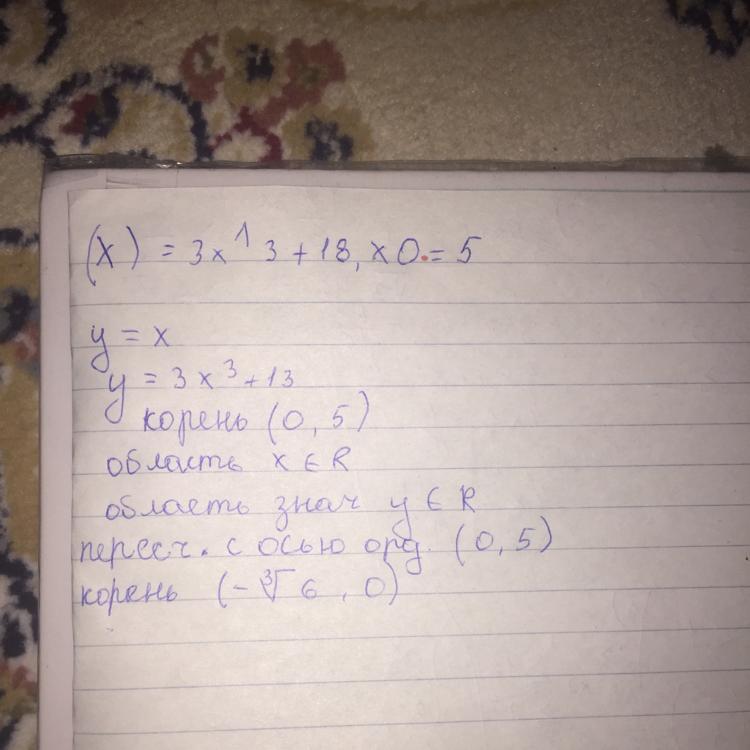 (x) = 3x^3+18, x0 = 5
y = x
y = 3x³+13
корень (0, 5)
область x ∈ R
область знач y ∈ R
пересч. с осью орд. (0, 5)
корень (-∛6, 0)